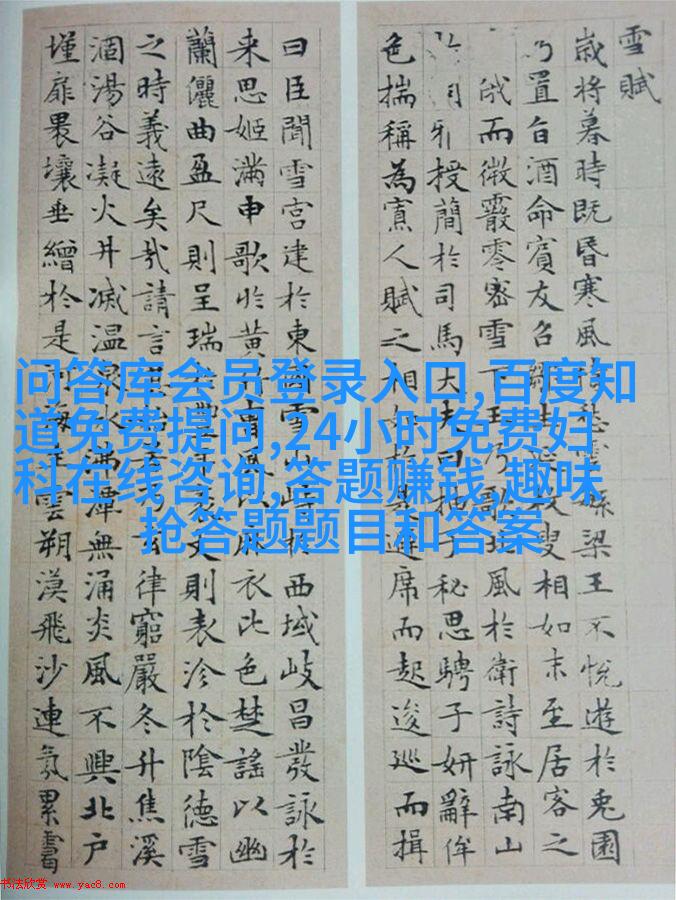 雪賦
歲將暮時既昏寒風愁雲梁王不悅遊於兔園
乃置旨酒命賓友召生延枚叟相如末至居客之
俄而微霰零密雪下王乃歌北風於衛詩詠南山
雅授簡於司馬大夫曰抽子秘思騁子妍辭侔
色揣稱為寡人賦之相如於是避席而起逡巡而揖
曰臣聞雪宮建於東國雪山峙於西域岐昌發詠於
來思姬滿申歌於黃竹曹風以麻衣比色楚謠以幽
蘭儷曲盈尺則呈瑞於豐年袤丈則表沴於陰德雪
之時義遠矣哉請言其始若乃玄律窮嚴冬升焦溪
涸湯谷凝火井滅溫泉冰沸潭無涌炎風不興北戶
墐扉壤垂繒於是河海生雲朔漠飛沙連氛累靄
问答库会员登录入口,百度知
道免费提问,24小时免费妇
科在线咨询,答题赚钱,趣味
抢答题题目和答案
书法欣赏 www.yac8.com